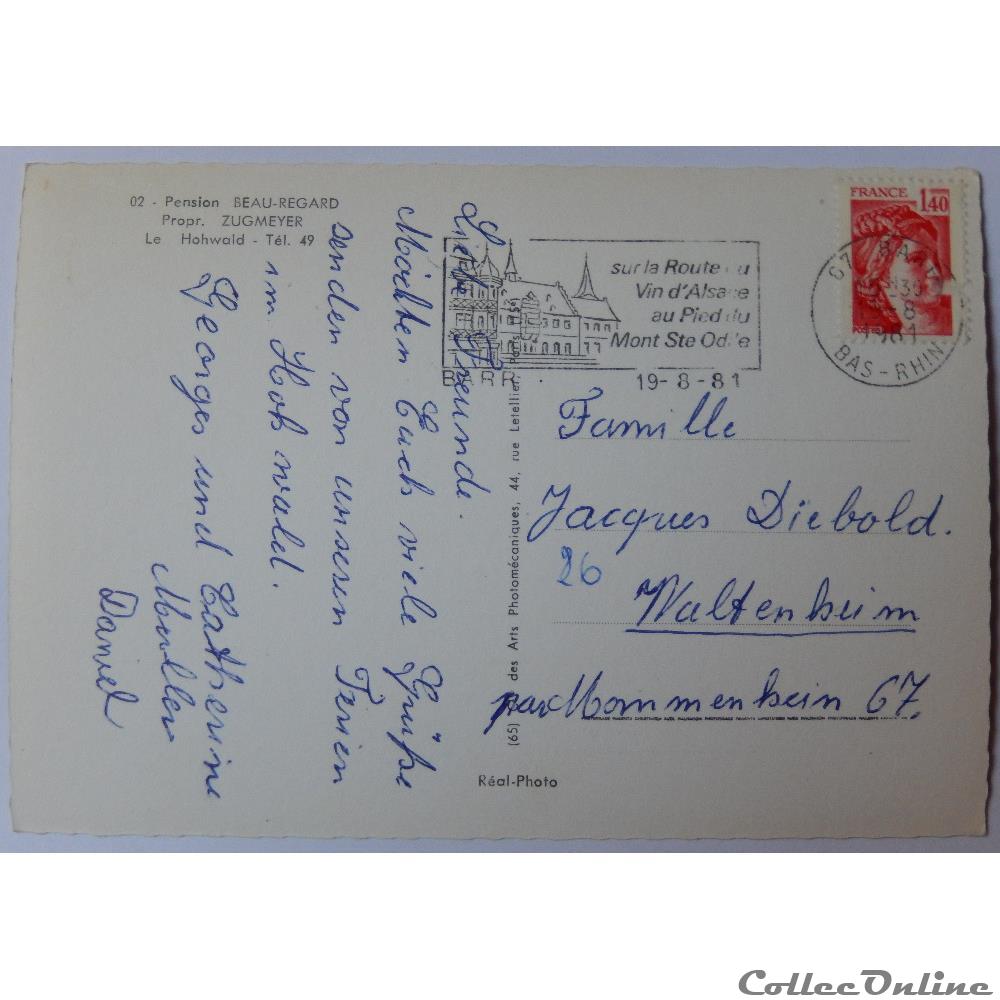 02 - Pension BEAU-REGARD
Propr. ZUGMEYER
Le Hohwald - Tél. 49
Liebe Freunde.
Möchten Euch viele Grüße
senden von unseren Ferien
im Hohwald.
Georges und Catherine
Muller
Daniel
FRANCE
1,40
sur la Route du
Vin d'Alsace
au Pied du
Mont Ste Odile
BARR
19-8-81
67 BARR
BAS-RHIN
Famille
Jacques Diebold.
26
Waltenheim
par Mommenheim 67.
des Arts Photomécaniques, 44, rue Letellier, Paris
(65)
Réal-Photo
CollecOnline